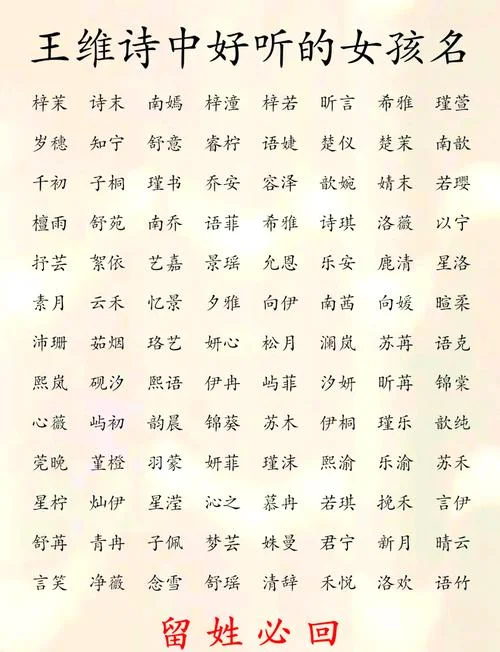 王维诗中好听的女孩名
梓茉 诗末 南嫣 梓潼 梓若 昕言 希雅 瑾萱
岁穗 知宁 舒意 睿柠 语婕 楚仪 楚茉 南歆
千初 子桐 瑾书 乔安 容泽 歆婉 婧末 若璎
檀雨 舒苑 南乔 语菲 希雅 诗琪 洛薇 以宁
抒芸 絮依 艺嘉 景瑶 允恩 乐安 鹿清 星洛
素月 云禾 忆景 夕雅 向伊 南茜 向媛 暄柔
沛珊 茹烟 珞艺 妍心 松月 澜岚 苏苒 语克
熙岚 砚汐 熙语 伊冉 屿菲 汐妍 昕苒 锦棠
心薇 屿初 韵晨 锦葵 苏木 伊桐 瑾乐 歆纯
莞晚 堇橙 羽蒙 妍菲 瑾沫 熙渝 乐渝 苏禾
星柠 灿伊 星滢 沁之 慕冉 若琪 挽禾 言伊
舒苒 青冉 子佩 梦芸 姝曼 君宁 新月 晴云
言笑 净薇 念雪 舒瑶 清辞 禾悦 洛欢 语竹
留姓必回